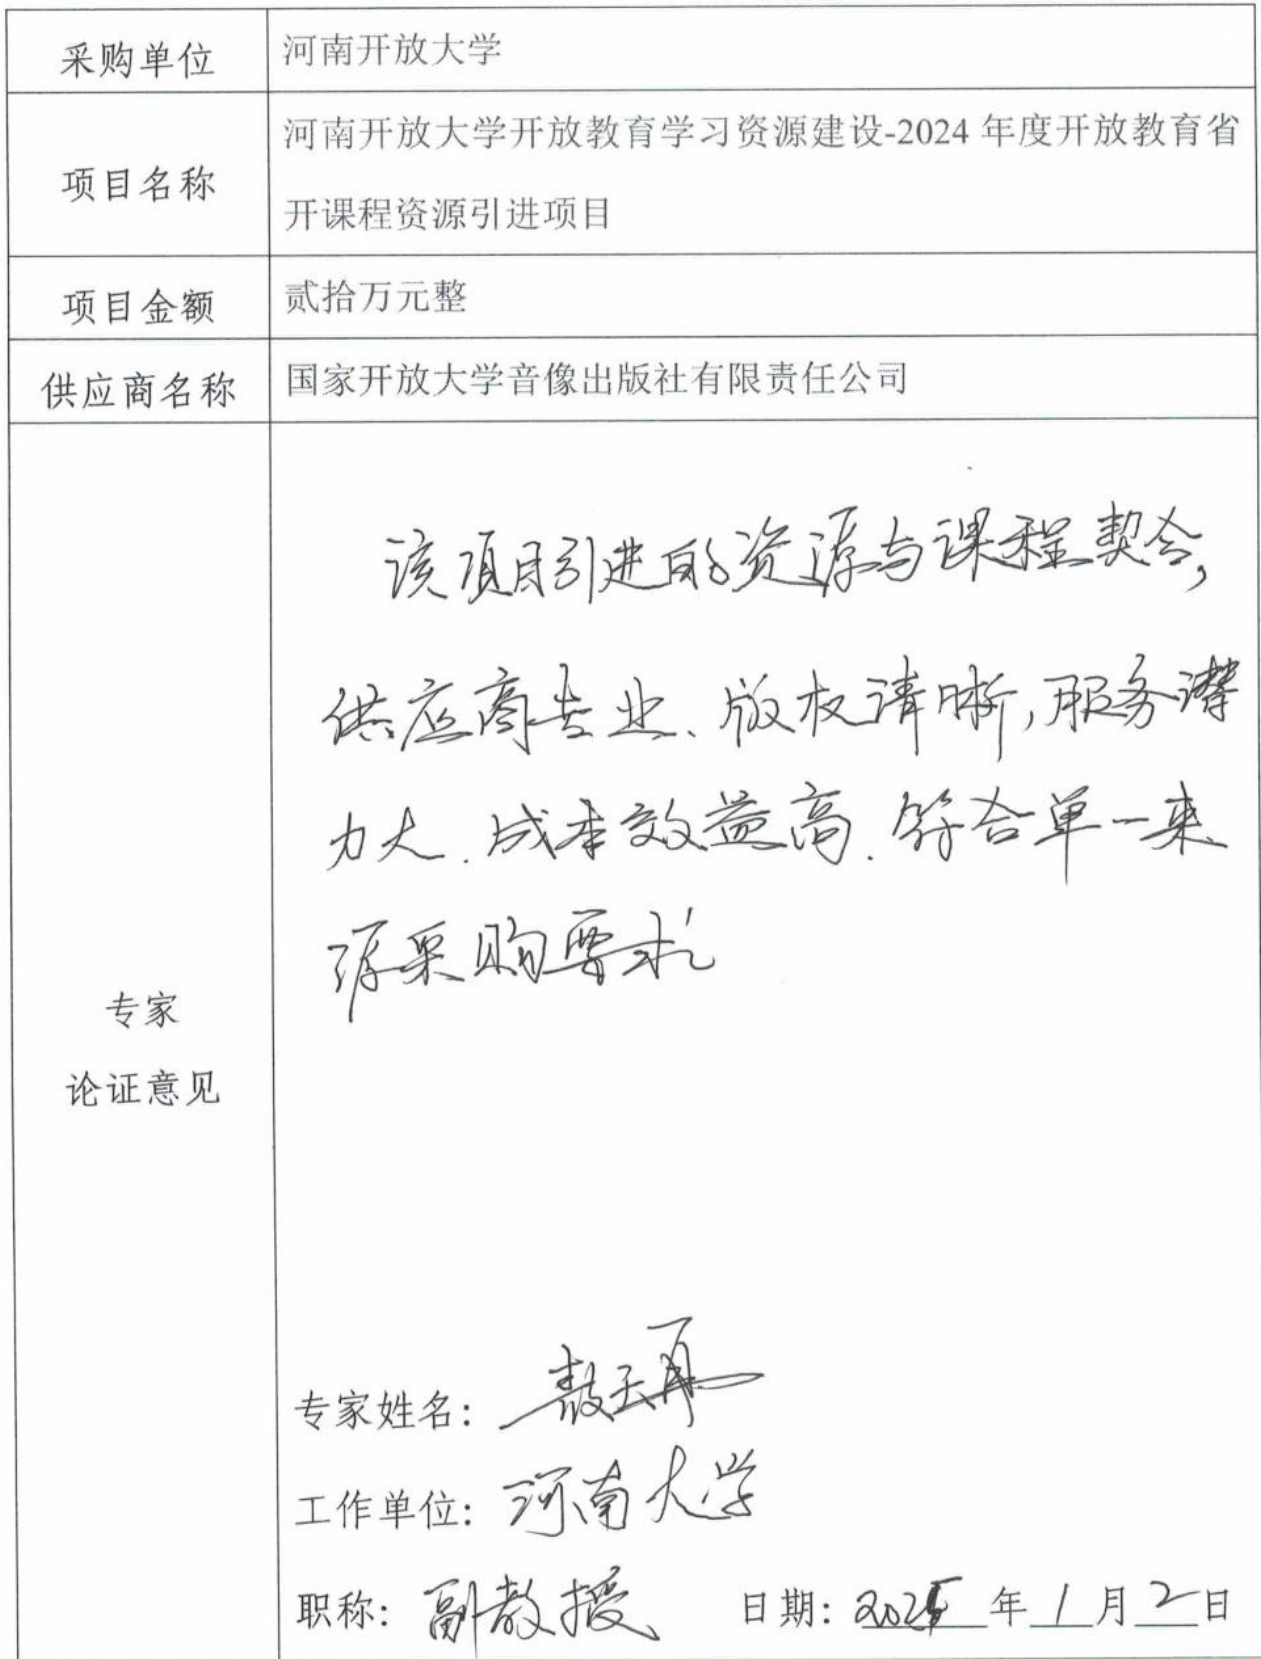 采购单位 河南开放大学
项目名称 河南开放大学开放教育学习资源建设-2024 年度开放教育省
开课程资源引进项目
项目金额 贰拾万元整
供应商名称 国家开放大学音像出版社有限责任公司
专家
论证意见
该项目引进的资源与课程契合,
供应商专业、版权清晰,服务潜
力大、成本效益高、符合单一来
源采购要求
专家姓名:
工作单位: 河南大学
职称: 副教授 日期: 2025 年 1 月 2 日